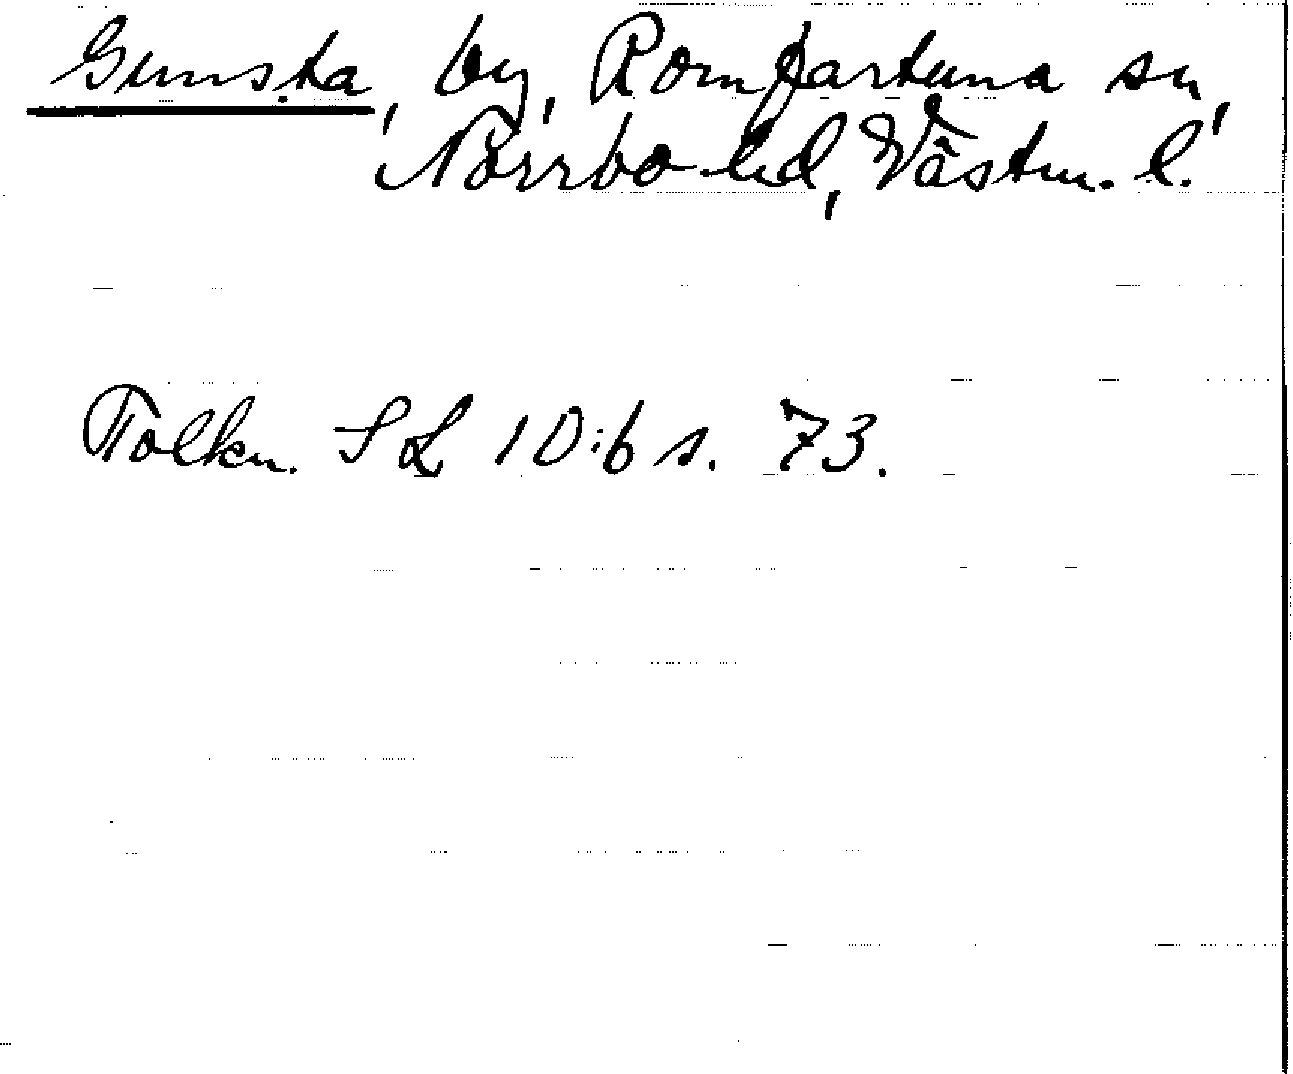 Gunsta, by, Romfartuna sn,
Norrbo hd, Västm. l.
Tolkn. SL 10:6 s. 73.